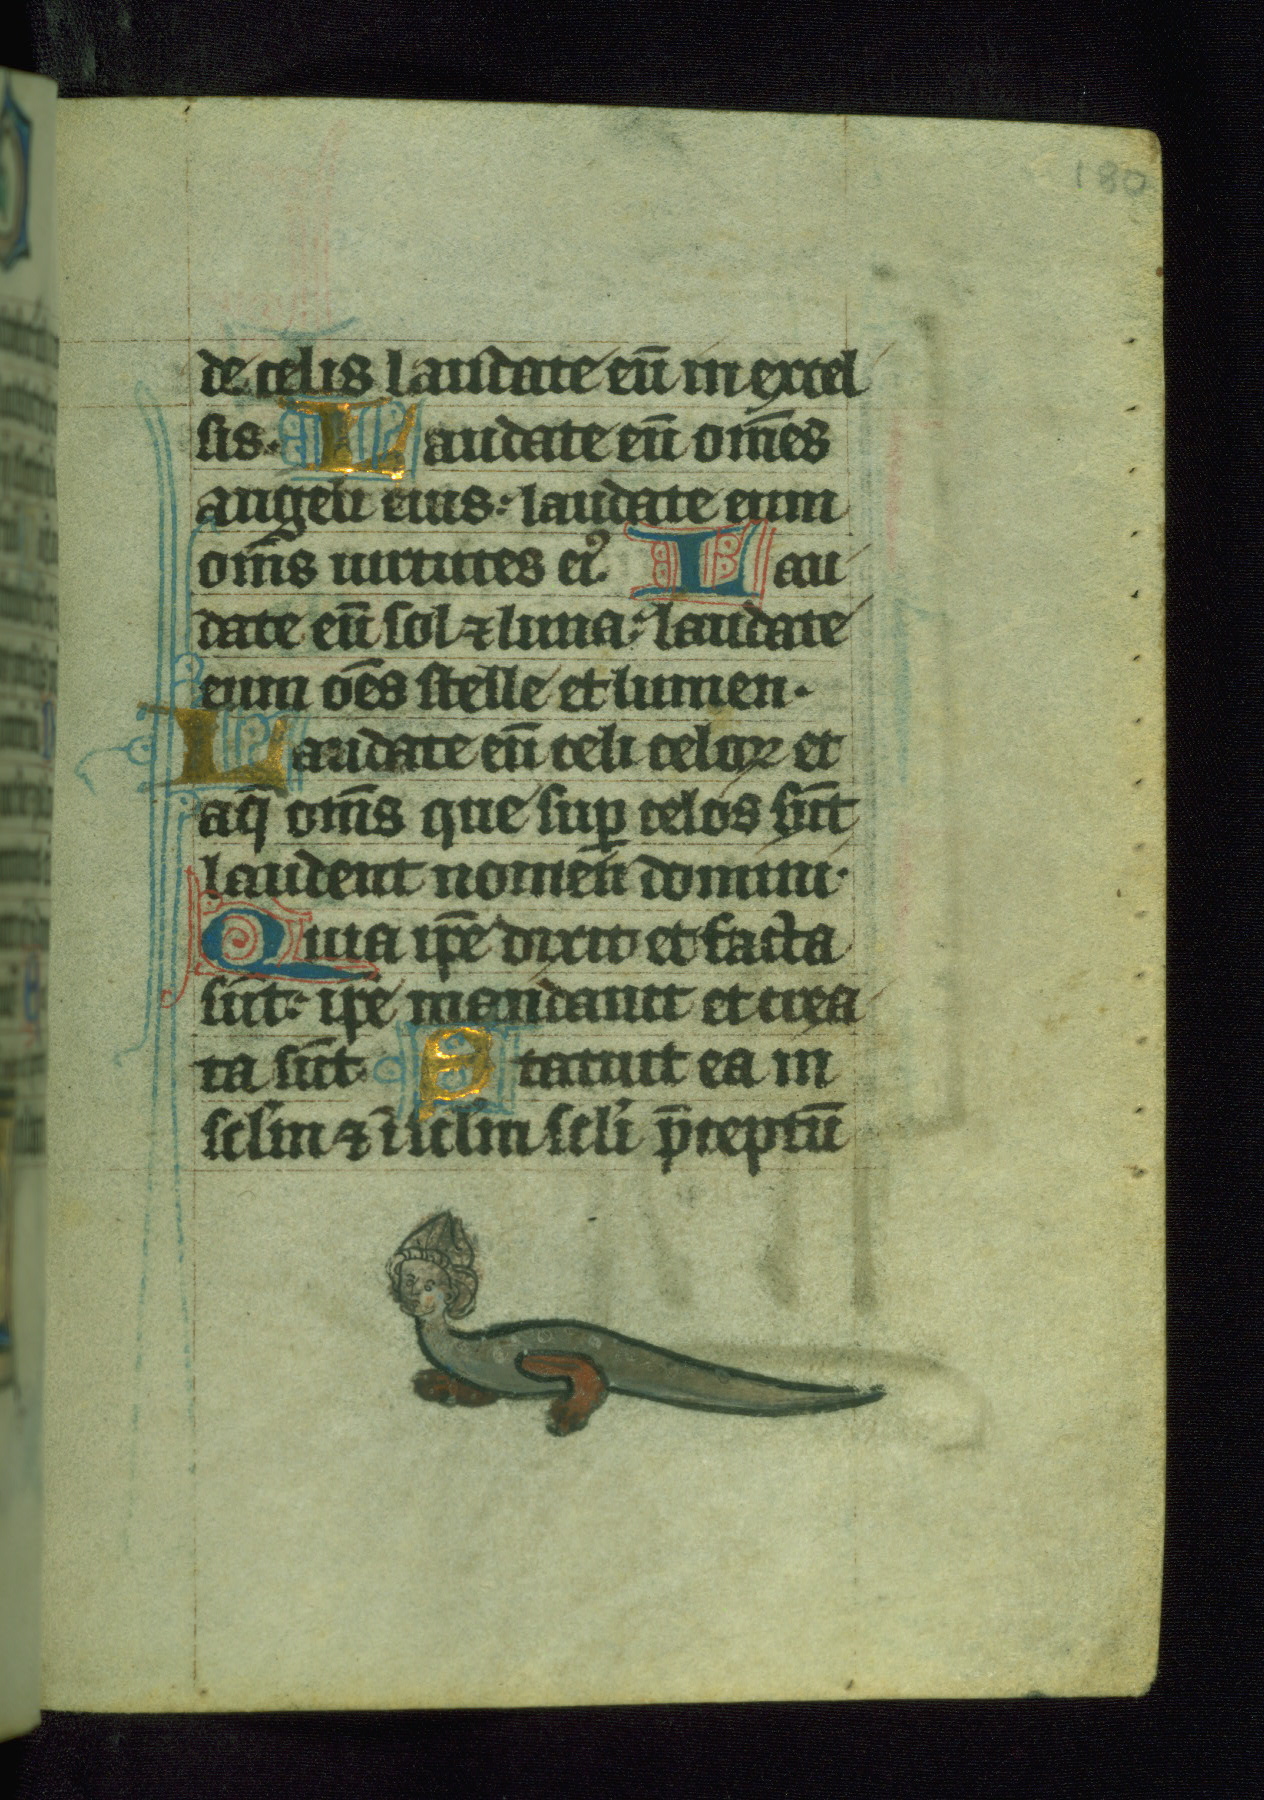 180
de celis laudate eū in excel
sis. Laudate eū om̄es
angeli eius: laudate eum
om̄s uirtutes eiꝰ. Lau
date eū sol ⁊ luna: laudate
eum ōes stelle et lumen.
Laudate eū celi celoꝝ et
aq̄ om̄s que suꝑ celos sūt
laudent nomen̄ domini.
Quia ip̄e dixit et facta
sūt: ip̄e mandauit et crea
ta sūt. Statuit ea in
sclm̄ ⁊ ī sclm̄ scli p̄ceptū